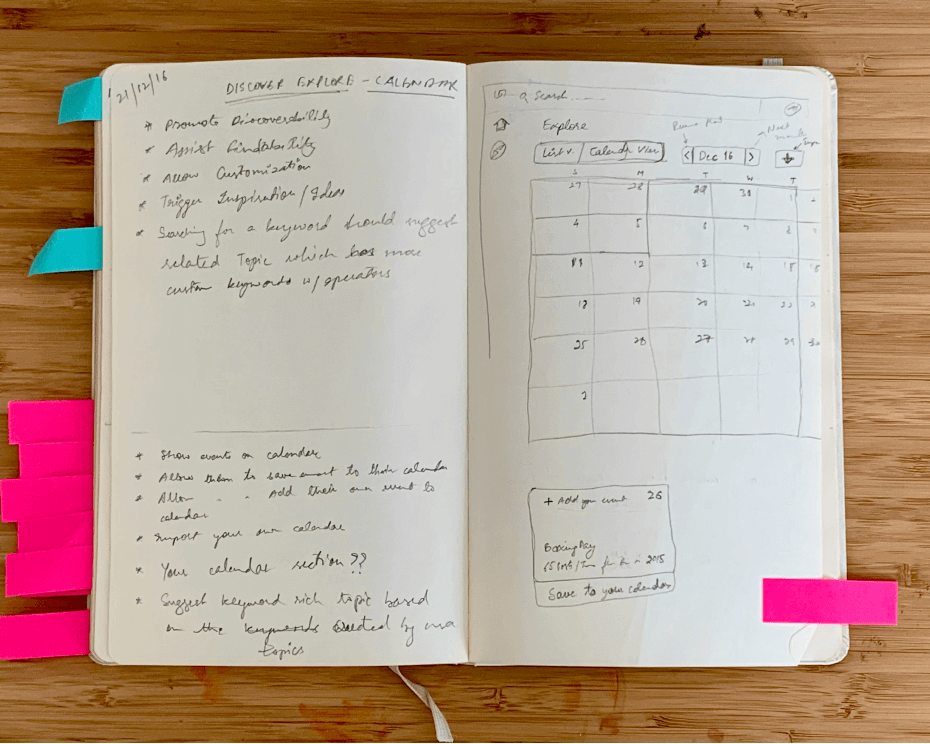 21/12/16
DISCOVER EXPLORE - CALENDAR
* Promote Discoverability
* Assist findability
* Allow Customization
* Trigger Inspiration / Ideas
* Searching for a keyword should suggest
related Topic which has more
custom keywords w/ operators
* Show events on calendar
* Allow them to save event to their calendar
* Allow " " Add their own event to
calendar
* Import your own calendar
* Your calendar section??
* Suggest keyword rich topic based
on the keywords created by
topics
Search
Explore
List v. / Calendar View
< Dec 16 >
Next
S M T W T
27 28 29 30 1 2
4 5 6 7 8
11 12 13 14 15
18 19 20 21 22
25 26 27 28 29 30
+ Add your event 26
Boxing Day
2015
Save to your calendar